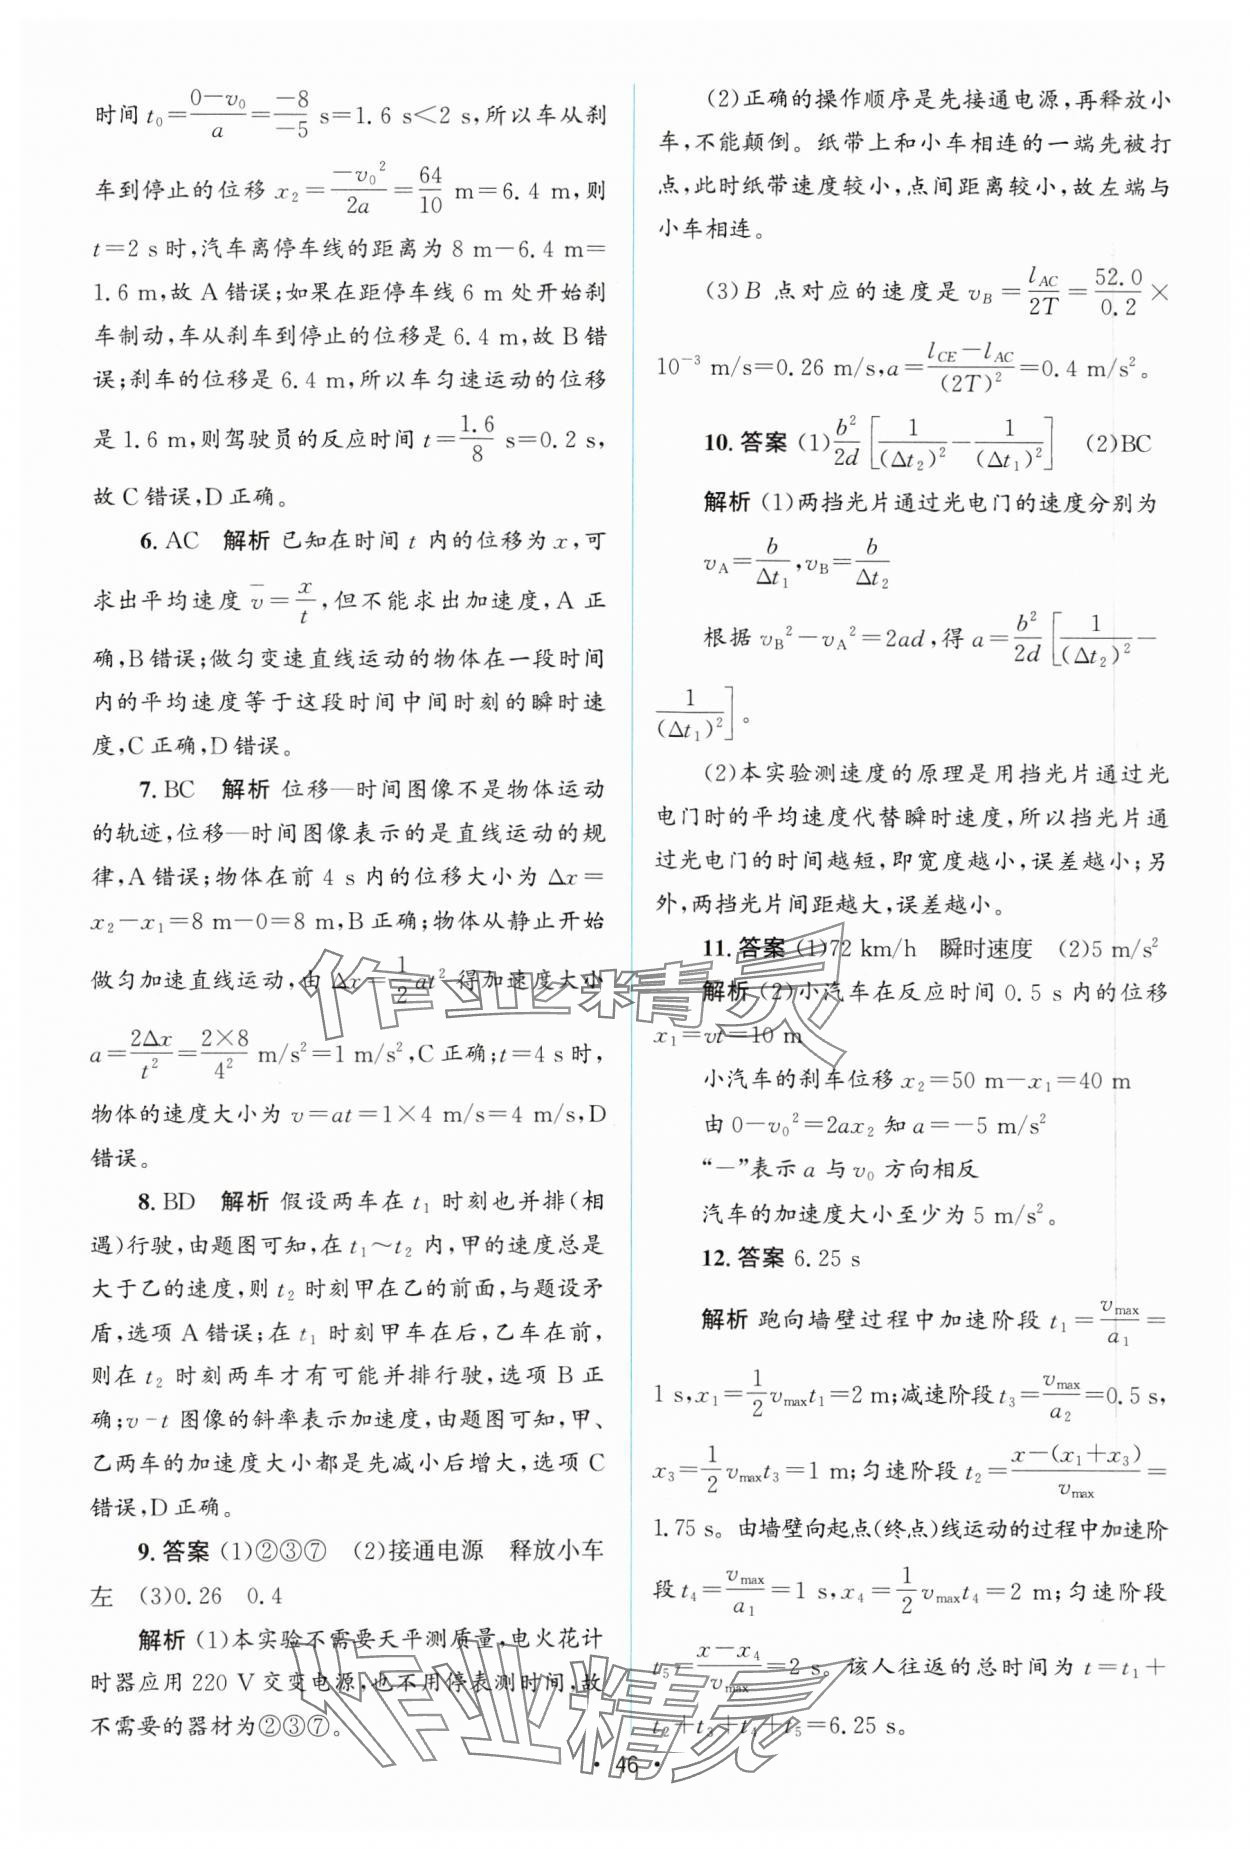 时间 t₀=(0-v₀)/a=(-8)/(-5) s=1.6 s<2 s,所以车从刹
车到停止的位移 x₂=(-v₀²)/(2a)=64/10 m=6.4 m,则
t=2 s时,汽车离停车线的距离为 8 m-6.4 m=
1.6 m,故 A 错误;如果在距停车线 6 m 处开始刹
车制动,车从刹车到停止的位移是 6.4 m,故 B 错
误;刹车的位移是 6.4 m,所以车匀速运动的位移
是 1.6 m,则驾驶员的反应时间 t=1.6/8 s=0.2 s,
故 C 错误,D 正确。
6. AC 解析 已知在时间 t 内的位移为 x,可
求出平均速度 v̄=x/t,但不能求出加速度,A 正
确,B 错误;做匀变速直线运动的物体在一段时间
内的平均速度等于这段时间中间时刻的瞬时速
度,C 正确,D 错误。
7. BC 解析 位移—时间图像不是物体运动
的轨迹,位移—时间图像表示的是直线运动的规
律,A 错误;物体在前 4 s 内的位移大小为 Δx=
x₂-x₁=8 m-0=8 m,B 正确;物体从静止开始
做匀加速直线运动,由 Δx=1/2 at² 得加速度大小
a=2Δx/t²=(2×8)/4² m/s²=1 m/s²,C 正确;t=4 s 时,
物体的速度大小为 v=at=1×4 m/s=4 m/s,D
错误。
8. BD 解析 假设两车在 t₁ 时刻也并排(相
遇)行驶,由题图可知,在 t₁~t₂ 内,甲的速度总是
大于乙的速度,则 t₂ 时刻甲在乙的前面,与题设矛
盾,选项 A 错误;在 t₁ 时刻甲车在后,乙车在前,
则在 t₂ 时刻两车才有可能并排行驶,选项 B 正
确;v-t 图像的斜率表示加速度,由题图可知,甲、
乙两车的加速度大小都是先减小后增大,选项 C
错误,D 正确。
9. 答案 (1)②③⑦ (2)接通电源 释放小车
左 (3)0.26 0.4
解析 (1)本实验不需要天平测质量,电火花计
时器应用 220 V 交变电源,也不用停表测时间,故
不需要的器材为②③⑦。
(2)正确的操作顺序是先接通电源,再释放小
车,不能颠倒。纸带上和小车相连的一端先被打
点,此时纸带速度较小,点间距离较小,故左端与
小车相连。
(3)B 点对应的速度是 v_B=l_AC/(2T)=52.0/0.2×
10⁻³ m/s=0.26 m/s,a=(l_CE-l_AC)/(2T)²=0.4 m/s²。
10. 答案 (1)b²/(2d)[1/(Δt₂)²-1/(Δt₁)²] (2)BC
解析 (1)两挡光片通过光电门的速度分别为
v_A=b/Δt₁,v_B=b/Δt₂
根据 v_B²-v_A²=2ad,得 a=b²/(2d)[1/(Δt₂)²-
1/(Δt₁)²]。
(2)本实验测速度的原理是用挡光片通过光
电门时的平均速度代替瞬时速度,所以挡光片通
过光电门的时间越短,即宽度越小,误差越小;另
外,两挡光片间距越大,误差越小。
11. 答案 (1)72 km/h 瞬时速度 (2)5 m/s²
解析 (2)小汽车在反应时间 0.5 s 内的位移
x₁=vt=10 m
小汽车的刹车位移 x₂=50 m-x₁=40 m
由 0-v₀²=2ax₂ 知 a=-5 m/s²
“-”表示 a 与 v₀ 方向相反
汽车的加速度大小至少为 5 m/s²。
12. 答案 6.25 s
解析 跑向墙壁过程中加速阶段 t₁=v_max/a₁=
1 s,x₁=1/2 v_max t₁=2 m;减速阶段 t₃=v_max/a₂=0.5 s,
x₃=1/2 v_max t₃=1 m;匀速阶段 t₂=(x-(x₁+x₃))/v_max=
1.75 s。由墙壁向起点(终点)线运动的过程中加速阶
段 t₄=v_max/a₁=1 s,x₄=1/2 v_max t₄=2 m;匀速阶段
t₅=(x-x₄)/v_max=2 s。该人往返的总时间为 t=t₁+
t₂+t₃+t₄+t₅=6.25 s。
作业精灵
作业精灵
· 46 ·